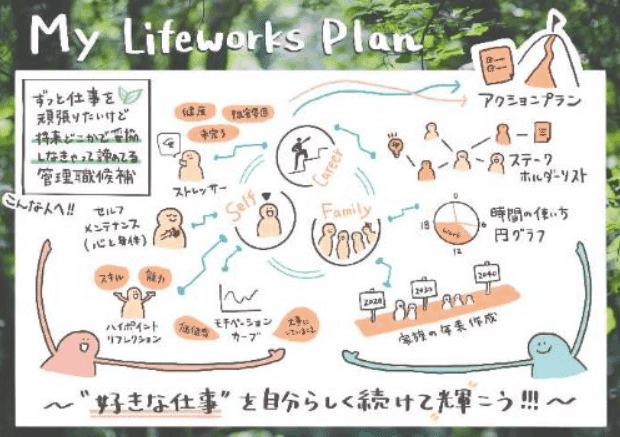 My Lifeworks Plan
アクションプラン
ずっと仕事を
頑張りたいけど
将来どこかで妥協
しなきゃって諦めてる
管理職候補
こんな人へ!!
健康
ストレッサー
Career
Self
Family
ステーク
ホルダーリスト
セルフ
メンテナンス
(心と身体)
0
6
12
18
Work
時間の使い方
円グラフ
スキル
能力
ハイポイント
リフレクション
価値観
モチベーション
カーブ
大事に
していること
2020
2030
2040
家族の年表作成
〜"好きな仕事"を自分らしく続けて輝こう!!!〜